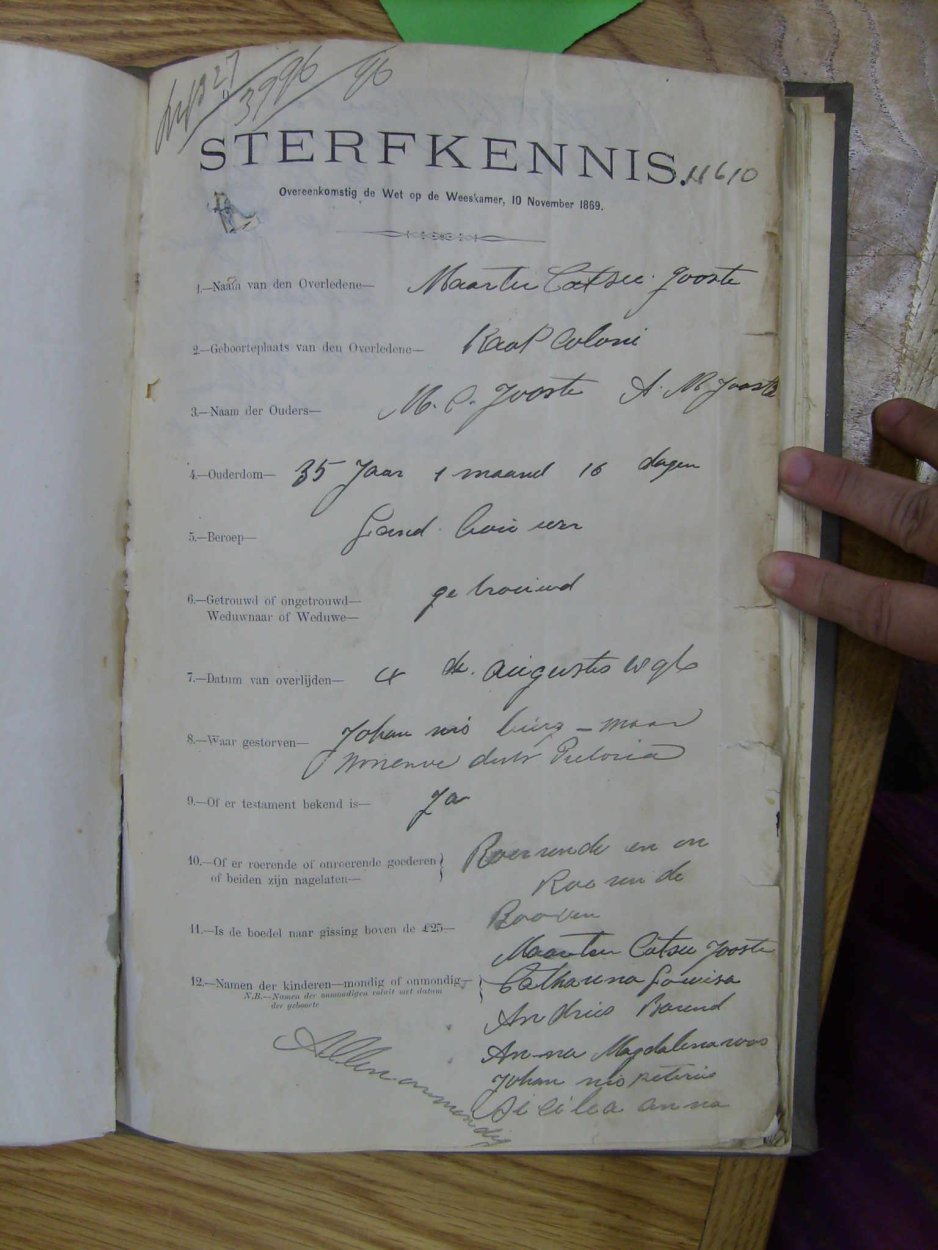 3996 96
STERFKENNIS. 11610
Overeenkomstig de Wet op de Weeskamer, 10 November 1869.
1.—Naam van den Overledene— Maarten Catsee Jooste
2.—Geboorteplaats van den Overledene— Kaap Coloni
3.—Naam der Ouders— M. C. Jooste A. M. Jooste
4.—Ouderdom— 35 Jaar 1 maand 16 dagen
5.—Beroep— Land bou uer
6.—Getrouwd of ongetrouwd— ge trouwd
Weduwnaar of Weduwe—
7.—Datum van overlijden— 4 de Augustus 1896
8.—Waar gestorven— Johan nis burg - maar
distr Pretoria
9.—Of er testament bekend is— Ja
10.—Of er roerende of onroerende goederen Roerende en on
of beiden zijn nagelaten— Roerende
11.—Is de boedel naar gissing boven de £25— Booven
Maarten Catsee Jooste
12.—Namen der kinderen—mondig of onmondig, Catharina Lowisa
N.B.—Namen der onmondigen voluit met datum
der geboorte
Andries Barend
An-na Magdalena
Johan nis peterus
Sicilea anna
Allen onmondig